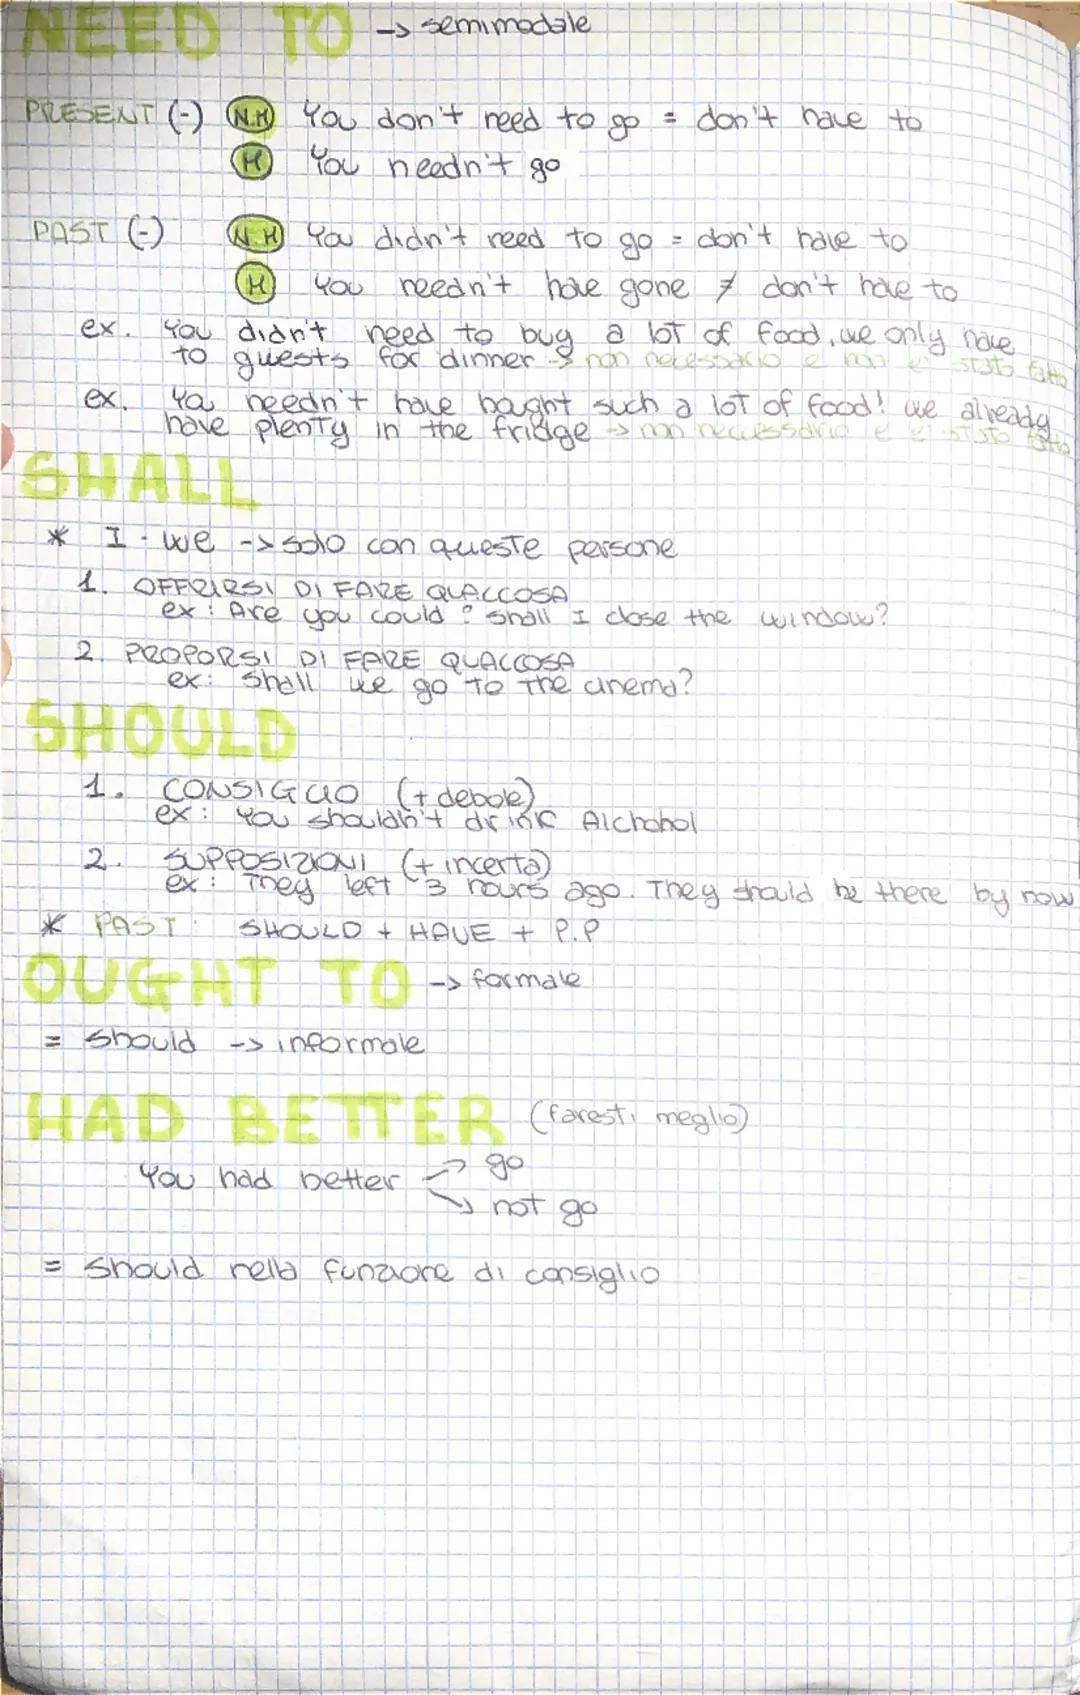 NEED TO -> semimodale
PRESENT (-) N.M You don't need to go = don't have to
M You needn't go
PAST (-) N.M You didn't need to go = don't have to
M You needn't have gone ≠ don't have to
ex. You didn't need to buy a lot of food, we only have
to guests for dinner -> non necessario e non è stato fatto
ex. You needn't have bought such a lot of food! we already
have plenty in the fridge -> non necessario e è stato fatto
SHALL
* I - we -> solo con queste persone
1. OFFRIRSI DI FARE QUALCOSA
ex: Are you could? shall I close the window?
2. PROPORSI DI FARE QUALCOSA
ex: Shall we go to the cinema?
SHOULD
1. CONSIGLIO (+ debole)
ex: You shouldn't drink Alchohol
2. SUPPOSIZIONI (+ incerta)
ex: They left 3 hours ago. They should be there by now
* PAST: SHOULD + HAVE + P.P
OUGHT TO -> formale
= should -> informale
HAD BETTER (faresti meglio)
You had better -> go
-> not go
= should nella funzione di consiglio